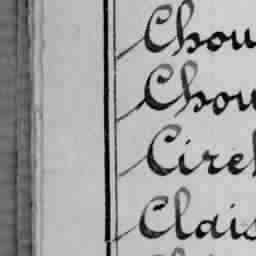 Chou
Chou
Cirel
Clais